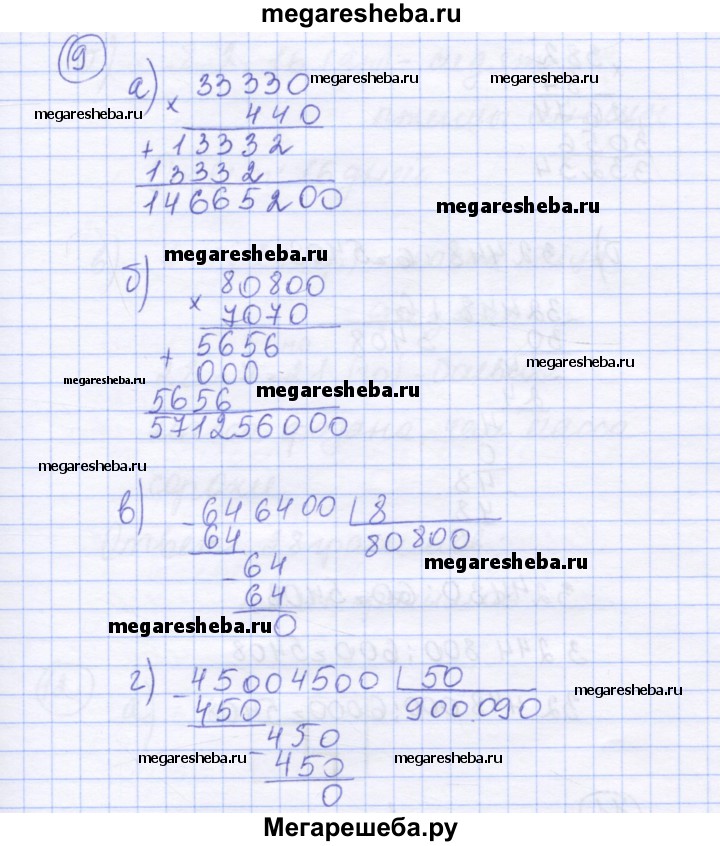 megaresheba.ru
9
а) 33330 megaresheba.ru megaresheba.ru
megaresheba.ru × 440
+ 13332
13332
14665200 megaresheba.ru
megaresheba.ru
б) 80800
× 7070
+ 5656 megaresheba.ru
megaresheba.ru 000 megaresheba.ru
5656
571256000
megaresheba.ru
в) - 646400 8
64 80800
- 64 megaresheba.ru
64
megaresheba.ru 0
г) - 45004500 50 megaresheba.ru
450 900.090
- 450
megaresheba.ru 450 megaresheba.ru
0
Мегарешеба.ру